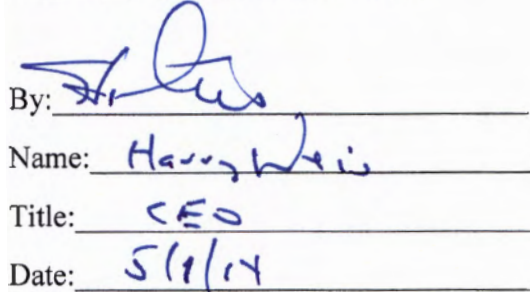 By:
Name: Harry Weis
Title: CEO
Date: 5/1/14